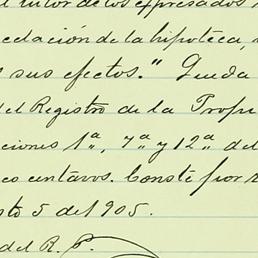 tutor de los expresados
celación de la hipoteca,
sus efectos." Queda
del Registro de la Propi
ciones 1ª, 7ª y 12ª del
es centavos. Conste por
sto 5 de 1905.
del R. P.